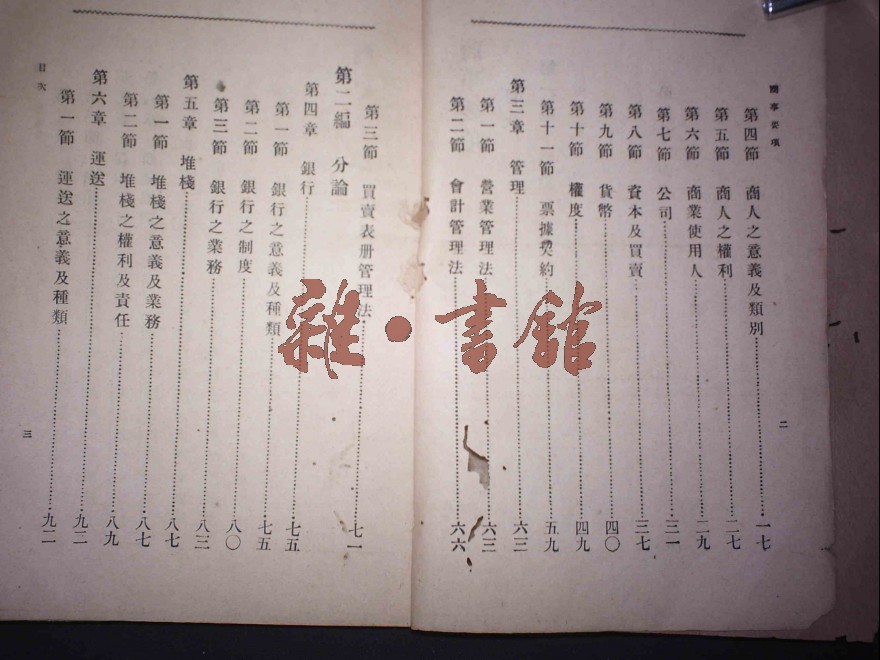 商事要項
第四節 商人之意義及類別 一七
第五節 商人之權利 二七
第六節 商業使用人 二九
第七節 公司 三一
第八節 資本及買賣 三七
第九節 貨幣 四〇
第十節 權度 四九
第十一節 票據契約 五九
第三章 管理 六三
第一節 營業管理法 六三
第二節 會計管理法 六六
二
第三節 買賣表册管理法 七一
第二編 分論
第四章 銀行 七五
第一節 銀行之意義及種類 七五
第二節 銀行之制度 八〇
第三節 銀行之業務 八三
第五章 堆棧 八七
第一節 堆棧之意義及業務 八七
第二節 堆棧之權利及責任 八九
第六章 運送 九二
第一節 運送之意義及種類 九二
目次
三
雜·書館